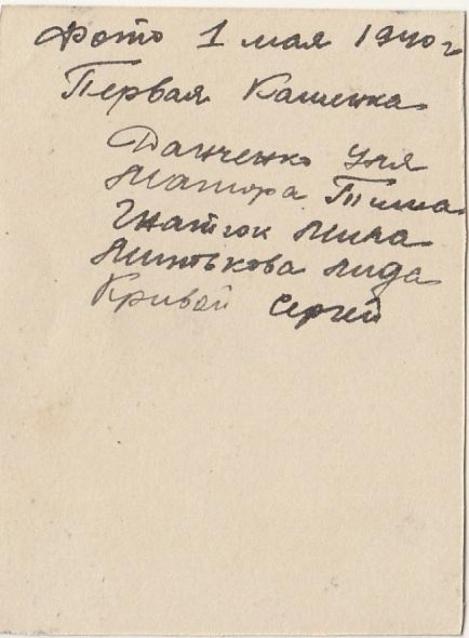 Фото 1 мая 1940 г
Первая Каменка
Данченко Уня
Тима
Гнатюк Мила
Минькова Лида
Кривой Сергей